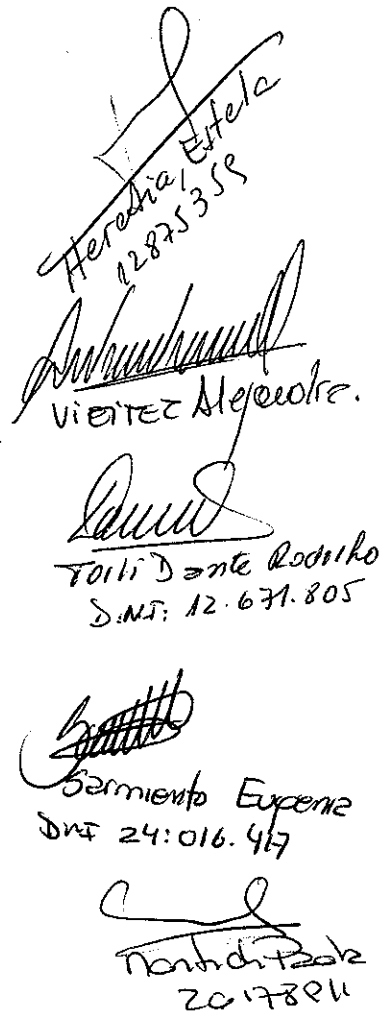 Heredia, Estela
12875359
VIEITEZ Alejandra.
Dante Rodolfo
D.N.I: 12.671.805
Sarmiento Eugenia
DNI 24:016.417
Paola